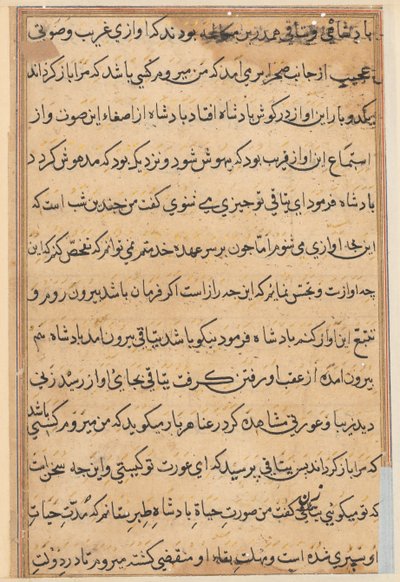 بادشاهی و یتاقی همدرین مکالمه بودند که اوازی غریب و صوتی
عجیب از جانب صحرا برمی امد که من میروم کسی باشد که مرا باز کرداند
یکدو بار این اواز در کوش بادشاه افتاد بادشاه از اصغاء این صوت و از
استماع این اواز قریب بود که بیهوش شود و نزدیک بود که مدهوش کردد
بادشاه فرمود ای یتاقی تو چیزی می شنوی کفت من چندین شب است که
این اوازی می شنوم اما چون بر سر عهده خدمتم نمی توانم که تفحص کنم که این
چه اوازست و تجسس نمایم که این چه رازست اکر فرمان باشد بیرون روم و
تتبع این اواز کنم بادشاه فرمود نیکو باشد یتاقی بیرون امد بادشاه هم
بیرون امده از عقب او رفتن کرفت یتاقی بجای اواز رسید زنی
دید زیبا و عورتی مشاهده کرد رعنا هر بار میکوید که من میروم کسی باشد
که مرا باز کرداند بس یتاقی پرسید که ای عورت تو کیستی و این چه سخن است
که تو میکوئی زن کفت من صورت حیاة بادشاه طبرستانم که مدت حیات
او سپری شده است و مهلت بقاء او منقضی کشته میروم تا در دولت